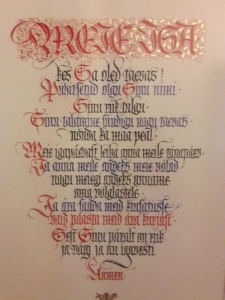 MEIE ISA
kes Sa oled taevas!
Pühitsetud olgu Sinu nimi
Sinu riik tulgu
Sinu tahtmine sündigu nagu taevas
nõnda ka maa peal
Meie igapäevast leiba anna meile tänapäev
Ja anna meile andeks meie võlad
nagu meiegi andeks anname
oma võlglastele
Ja ära saada meid kiusatusse
vaid päästa meid ära kurjast
Sest Sinu päralt on riik
ja vägi ja au igavesti
Aamen